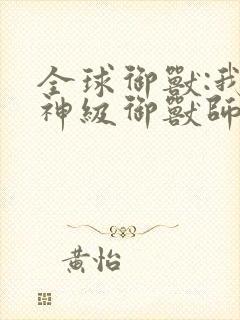 全球御獸:我
神級御獸師
黃怡